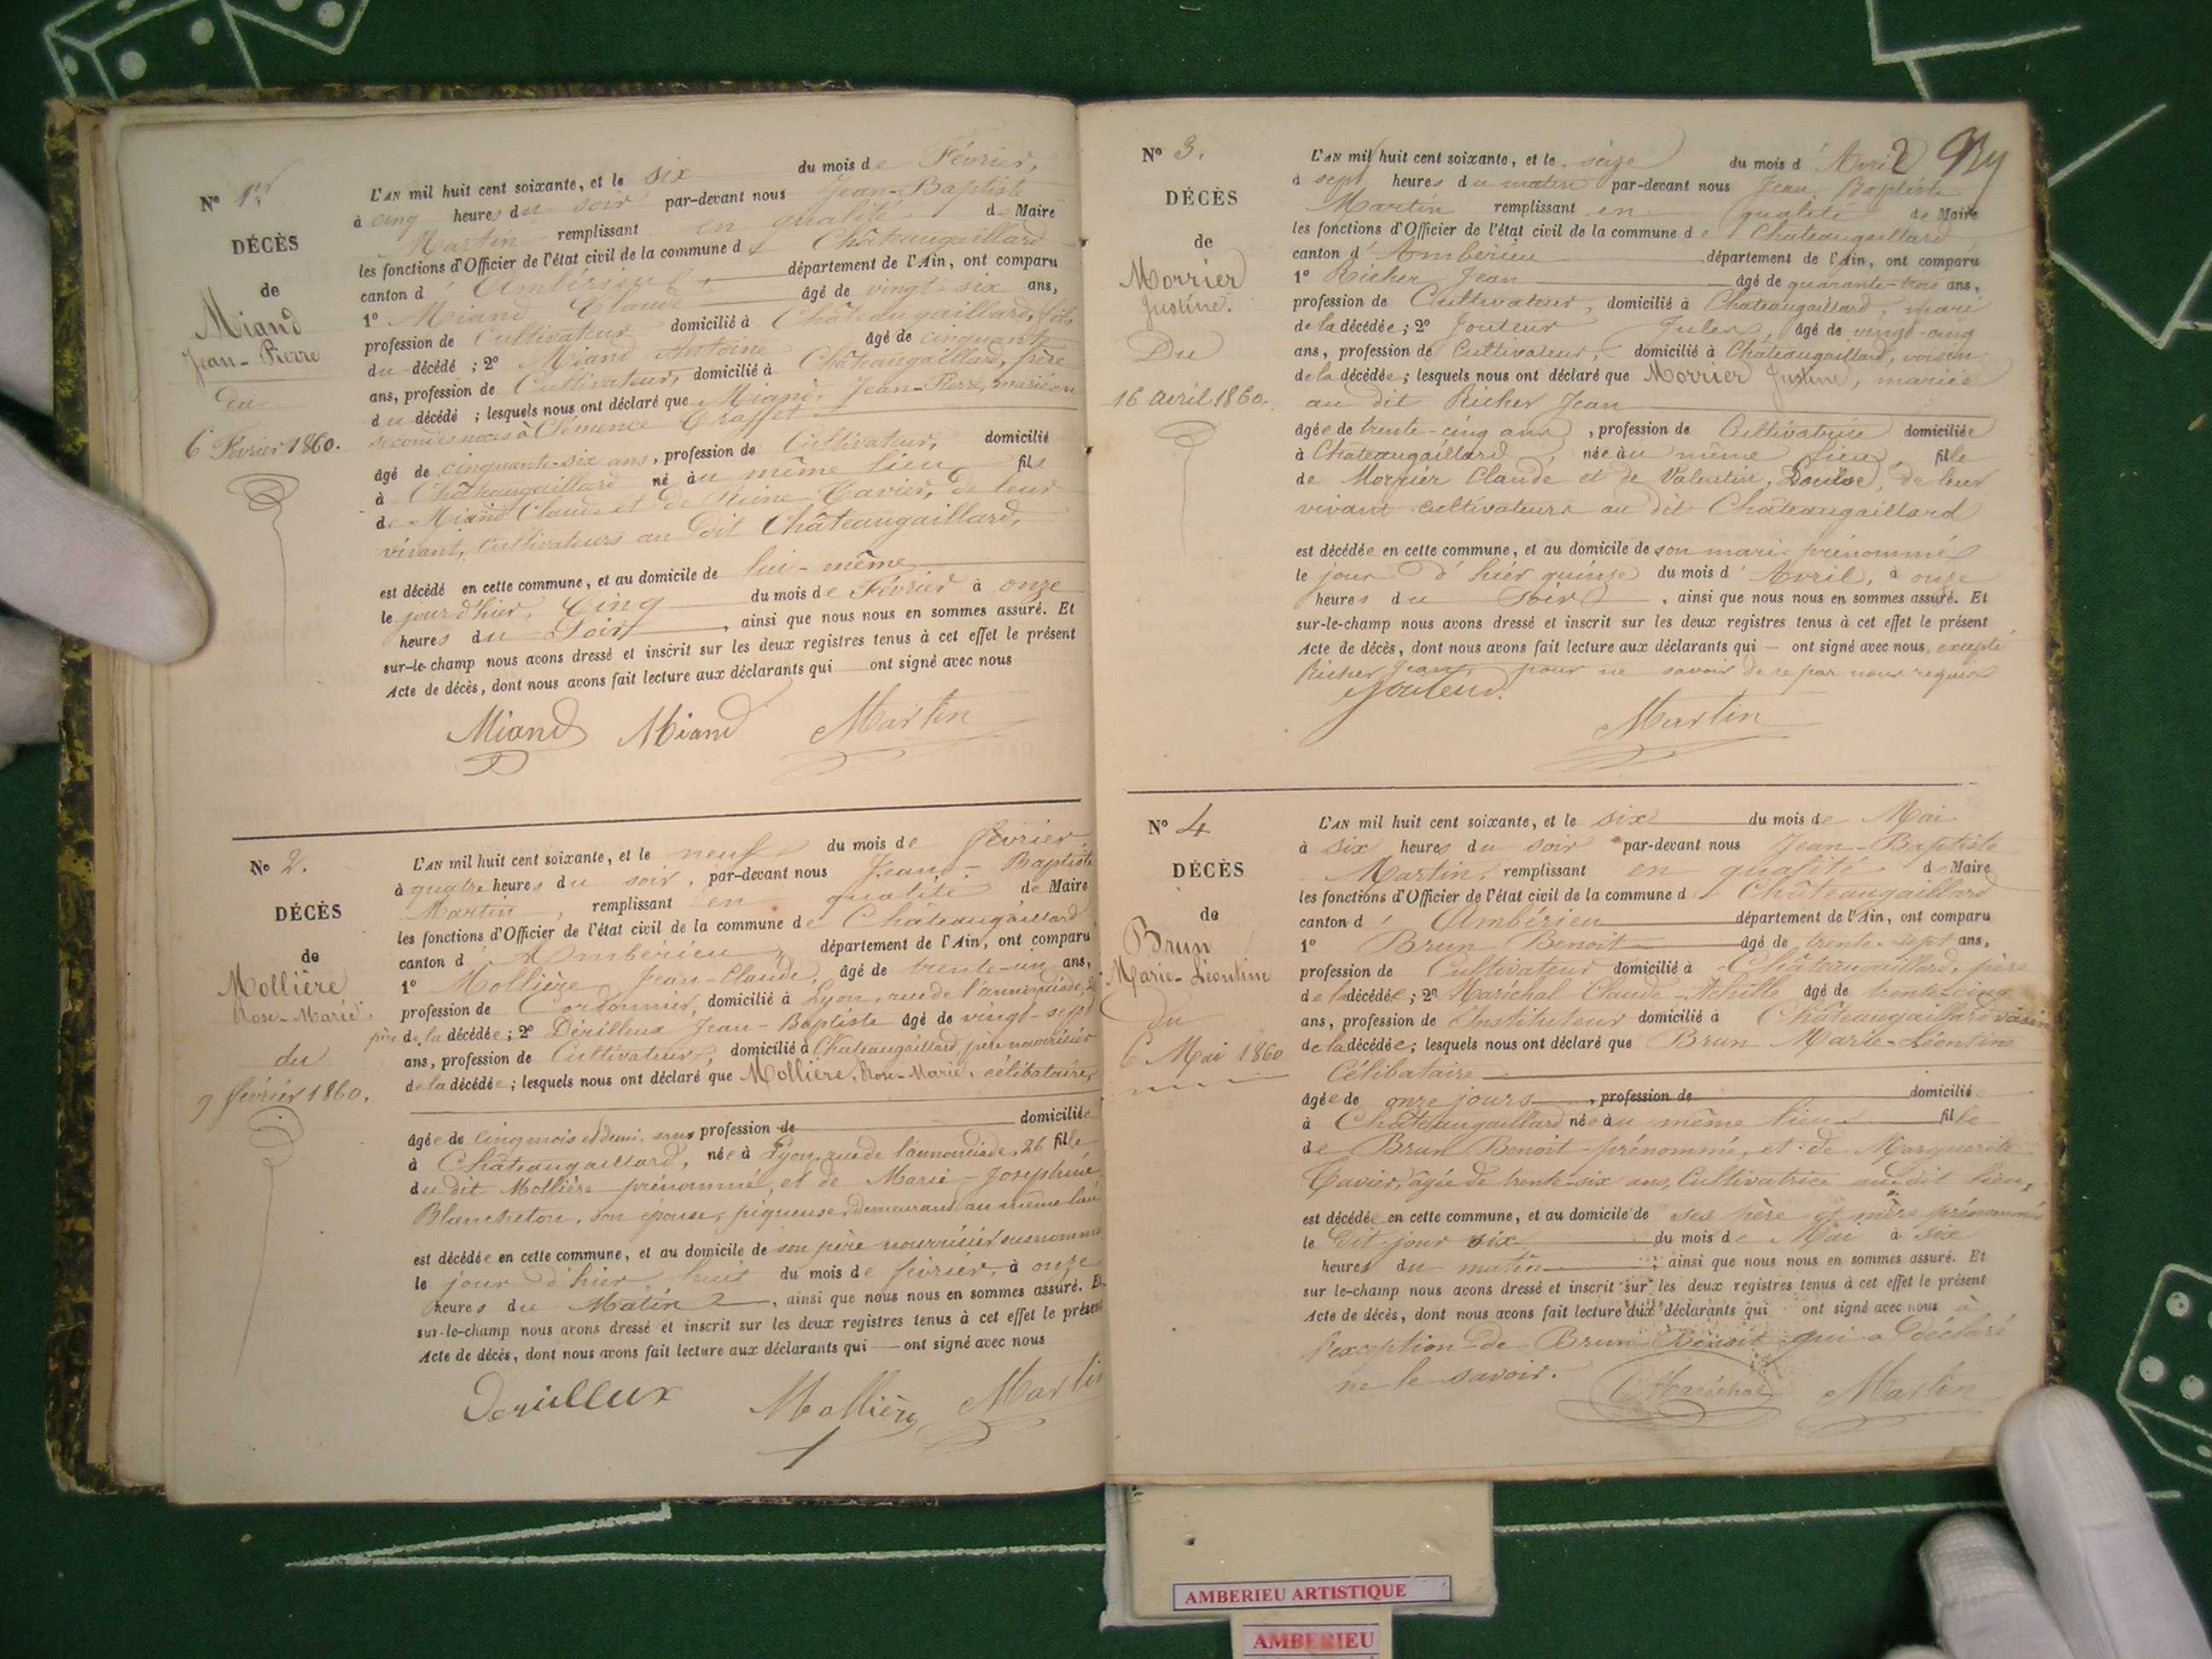 N° 1er
DÉCÈS
de
Miand
Jean-Pierre
du
6 Février 1860.
L'AN mil huit cent soixante, et le six du mois de Février,
à cinq heures du soir par-devant nous Jean-Baptiste
Martin remplissant en qualité de Maire
les fonctions d'Officier de l'état civil de la commune de Châteaugaillard
canton d'Ambérieu département de l'Ain, ont comparu
1° Miand Claude âgé de vingt-six ans,
profession de Cultivateur domicilié à Châteaugaillard, fils
du décédé ; 2° Miand Antoine âgé de cinquante
ans, profession de Cultivateur, domicilié à Châteaugaillard, frère
du décédé ; lesquels nous ont déclaré que Miand, Jean-Pierre, marié en
secondes noces à Clémence
âgé de cinquante-six ans, profession de Cultivateur, domicilié
à Châteaugaillard né au même lieu fils
de Miand Claude et de Reine Cavier, de leur
vivant, cultivateurs au dit Châteaugaillard,
est décédé en cette commune, et au domicile de lui-même
le jour d'hier, Cinq du mois de Février à onze
heures du Soir, ainsi que nous nous en sommes assuré. Et
sur-le-champ nous avons dressé et inscrit sur les deux registres tenus à cet effet le présent
Acte de décès, dont nous avons fait lecture aux déclarants qui ont signé avec nous
Miand Miand Martin
N° 2.
DÉCÈS
de
Mollière
Rose-Marie.
du
9 février 1860.
L'AN mil huit cent soixante, et le neuf du mois de février
à quatre heures du soir, par-devant nous Jean-Baptiste
Martin, remplissant en qualité de Maire
les fonctions d'Officier de l'état civil de la commune de Châteaugaillard
canton d'Ambérieu département de l'Ain, ont comparu
1° Mollière Jean-Claude, âgé de trente-un ans,
profession de Cordonnier, domicilié à Lyon, rue de l'annonciade,
père de la décédée ; 2° Dérilleux Jean-Baptiste âgé de vingt-sept
ans, profession de Cultivateur, domicilié à Châteaugaillard, père nourricier
de la décédée ; lesquels nous ont déclaré que Mollière, Rose-Marie, célibataire,
âgée de cinq mois et demi, sans profession de domiciliée
à Châteaugaillard, née à Lyon, rue de l'annonciade, 26 fille
du dit Mollière prénommé, et de Marie-Joséphine
Blancheton, son épouse, piqueuse, demeurant au même lieu
est décédée en cette commune, et au domicile de son père nourricier susnommé
le jour d'hier huit du mois de février, à onze
heures du Matin, ainsi que nous nous en sommes assuré. Et
sur-le-champ nous avons dressé et inscrit sur les deux registres tenus à cet effet le présent
Acte de décès, dont nous avons fait lecture aux déclarants qui — ont signé avec nous
Derilleux Mollière Martin
2
N° 3.
DÉCÈS
de
Morrier
Justine.
Du
16 avril 1860.
L'AN mil huit cent soixante, et le seize du mois d'Avril
à sept heures du matin par-devant nous Jean Baptiste
Martin remplissant en qualité de Maire
les fonctions d'Officier de l'état civil de la commune de Châteaugaillard
canton d'Ambérieu département de l'Ain, ont comparu
1° Richer Jean âgé de quarante-trois ans,
profession de Cultivateur, domicilié à Châteaugaillard, mari
de la décédée ; 2° Jouteur Jules, âgé de vingt-cinq
ans, profession de Cultivateur, domicilié à Châteaugaillard, voisin
de la décédée ; lesquels nous ont déclaré que Morrier Justine, mariée
au dit Richer Jean
âgée de trente-cinq ans, profession de Cultivatrice domiciliée
à Châteaugaillard, née au même lieu, fille
de Morrier Claude et de Valentin, Louise, de leur
vivant cultivateurs au dit Châteaugaillard
est décédée en cette commune, et au domicile de son mari prénommé
le jour d'hier quinze du mois d'Avril, à onze
heures du soir, ainsi que nous nous en sommes assuré. Et
sur-le-champ nous avons dressé et inscrit sur les deux registres tenus à cet effet le présent
Acte de décès, dont nous avons fait lecture aux déclarants qui — ont signé avec nous, excepté
Richer Jean, pour ne savoir de ce par nous requis
Jouteur.
Martin
N° 4
DÉCÈS
de
Brun
Marie-Léontine
Du
6 Mai 1860
L'AN mil huit cent soixante, et le six du mois de Mai
à six heures du soir par-devant nous Jean-Baptiste
Martin, remplissant en qualité de Maire
les fonctions d'Officier de l'état civil de la commune de Châteaugaillard
canton d'Ambérieu département de l'Ain, ont comparu
1° Brun Benoit âgé de trente-sept ans,
profession de Cultivateur domicilié à Châteaugaillard, père
de la décédée ; 2° Maréchal Claude-Achille âgé de trente-cinq
ans, profession de Instituteur domicilié à Châteaugaillard voisin
de la décédée ; lesquels nous ont déclaré que Brun Marie-Léontine
Célibataire
âgée de onze jours, profession de domicilié
à Châteaugaillard née au même lieu fille
de Brun Benoit prénommé, et de Marguerite
Cavier, âgée de trente-six ans, Cultivatrice au dit lieu,
est décédée en cette commune, et au domicile de ses père et mère prénommés
le dit jour six du mois de Mai à six
heures du matin, ainsi que nous nous en sommes assuré. Et
sur le-champ nous avons dressé et inscrit sur les deux registres tenus à cet effet le présent
Acte de décès, dont nous avons fait lecture aux déclarants qui ont signé avec nous à
l'exception de Brun Benoit qui a déclaré
ne le savoir.
Maréchal Martin
AMBERIEU ARTISTIQUE
AMBERIEU